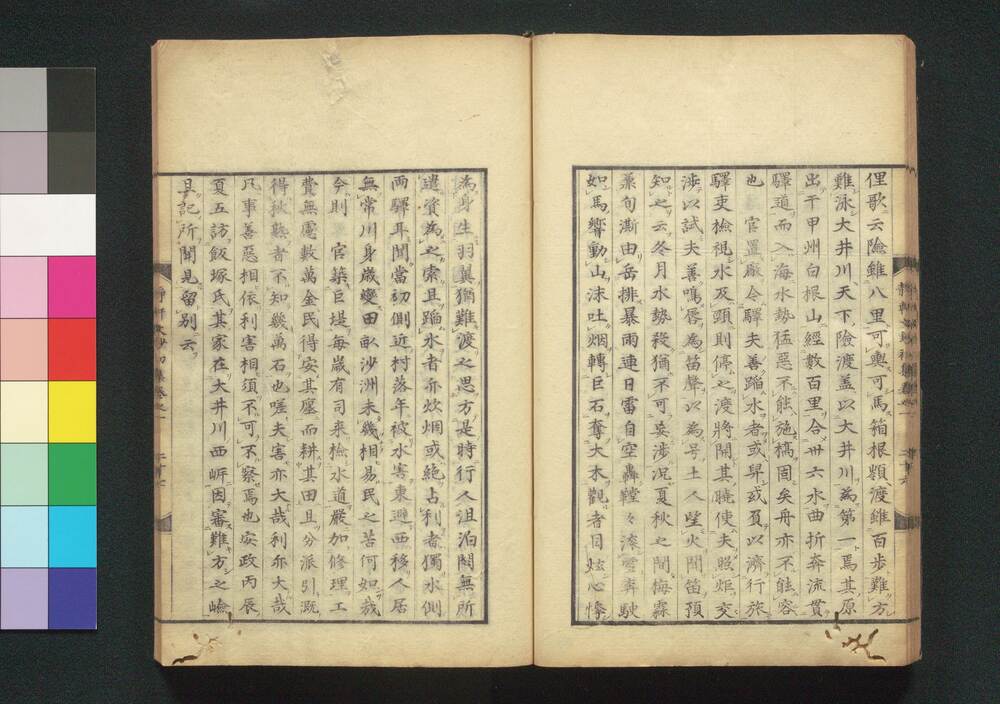 俚歌云險雖八里可輿可馬箱根嶺渡雖百步難方
難泳大井川天下險渡蓋以大井川為第一焉其原
出于甲州白根山經數百里合卅六水曲折奔流貫
驛道而入海水勢猛惡不能施橋固矣舟亦不能容
也 官置厰令驛夫善蹈水者或舁或負以濟行旅
驛吏檢視水及頸則停之渡將開其曉使夫照炬交
涉以試夫善鳴唇為笛聲以為号土人望火聞笛預
知之云冬月水勢殺猶不可妄涉況夏秋之間梅霖
兼旬漸由岳排暴雨連日雷自空轟鞺々濤雪奔駛
如馬響動山沫吐烟轉巨石奪大木觀者目炫心悸
為身生羽翼猶難渡之思方是時行人沮泊閼無所
遣資為之索且蹈水者亦炊烟或絶占利者獨水側
兩驛耳聞當初側近村落年被水害東避西移人居
無常川身歲變田畝沙洲未幾相易民之苦何如哉
今則 官築巨堤每歲有司来檢水道嚴加修理工
費無慮數萬金民得安其廛而耕其田且分派引溉
得秋熟者不知幾萬石也嗟夫害亦大哉利亦大哉
凡事善惡相依利害相須不可不察焉也安政丙辰
夏五訪飯塚氏其家在大井川西㟁因審難方之嶮
且記所聞見留別云